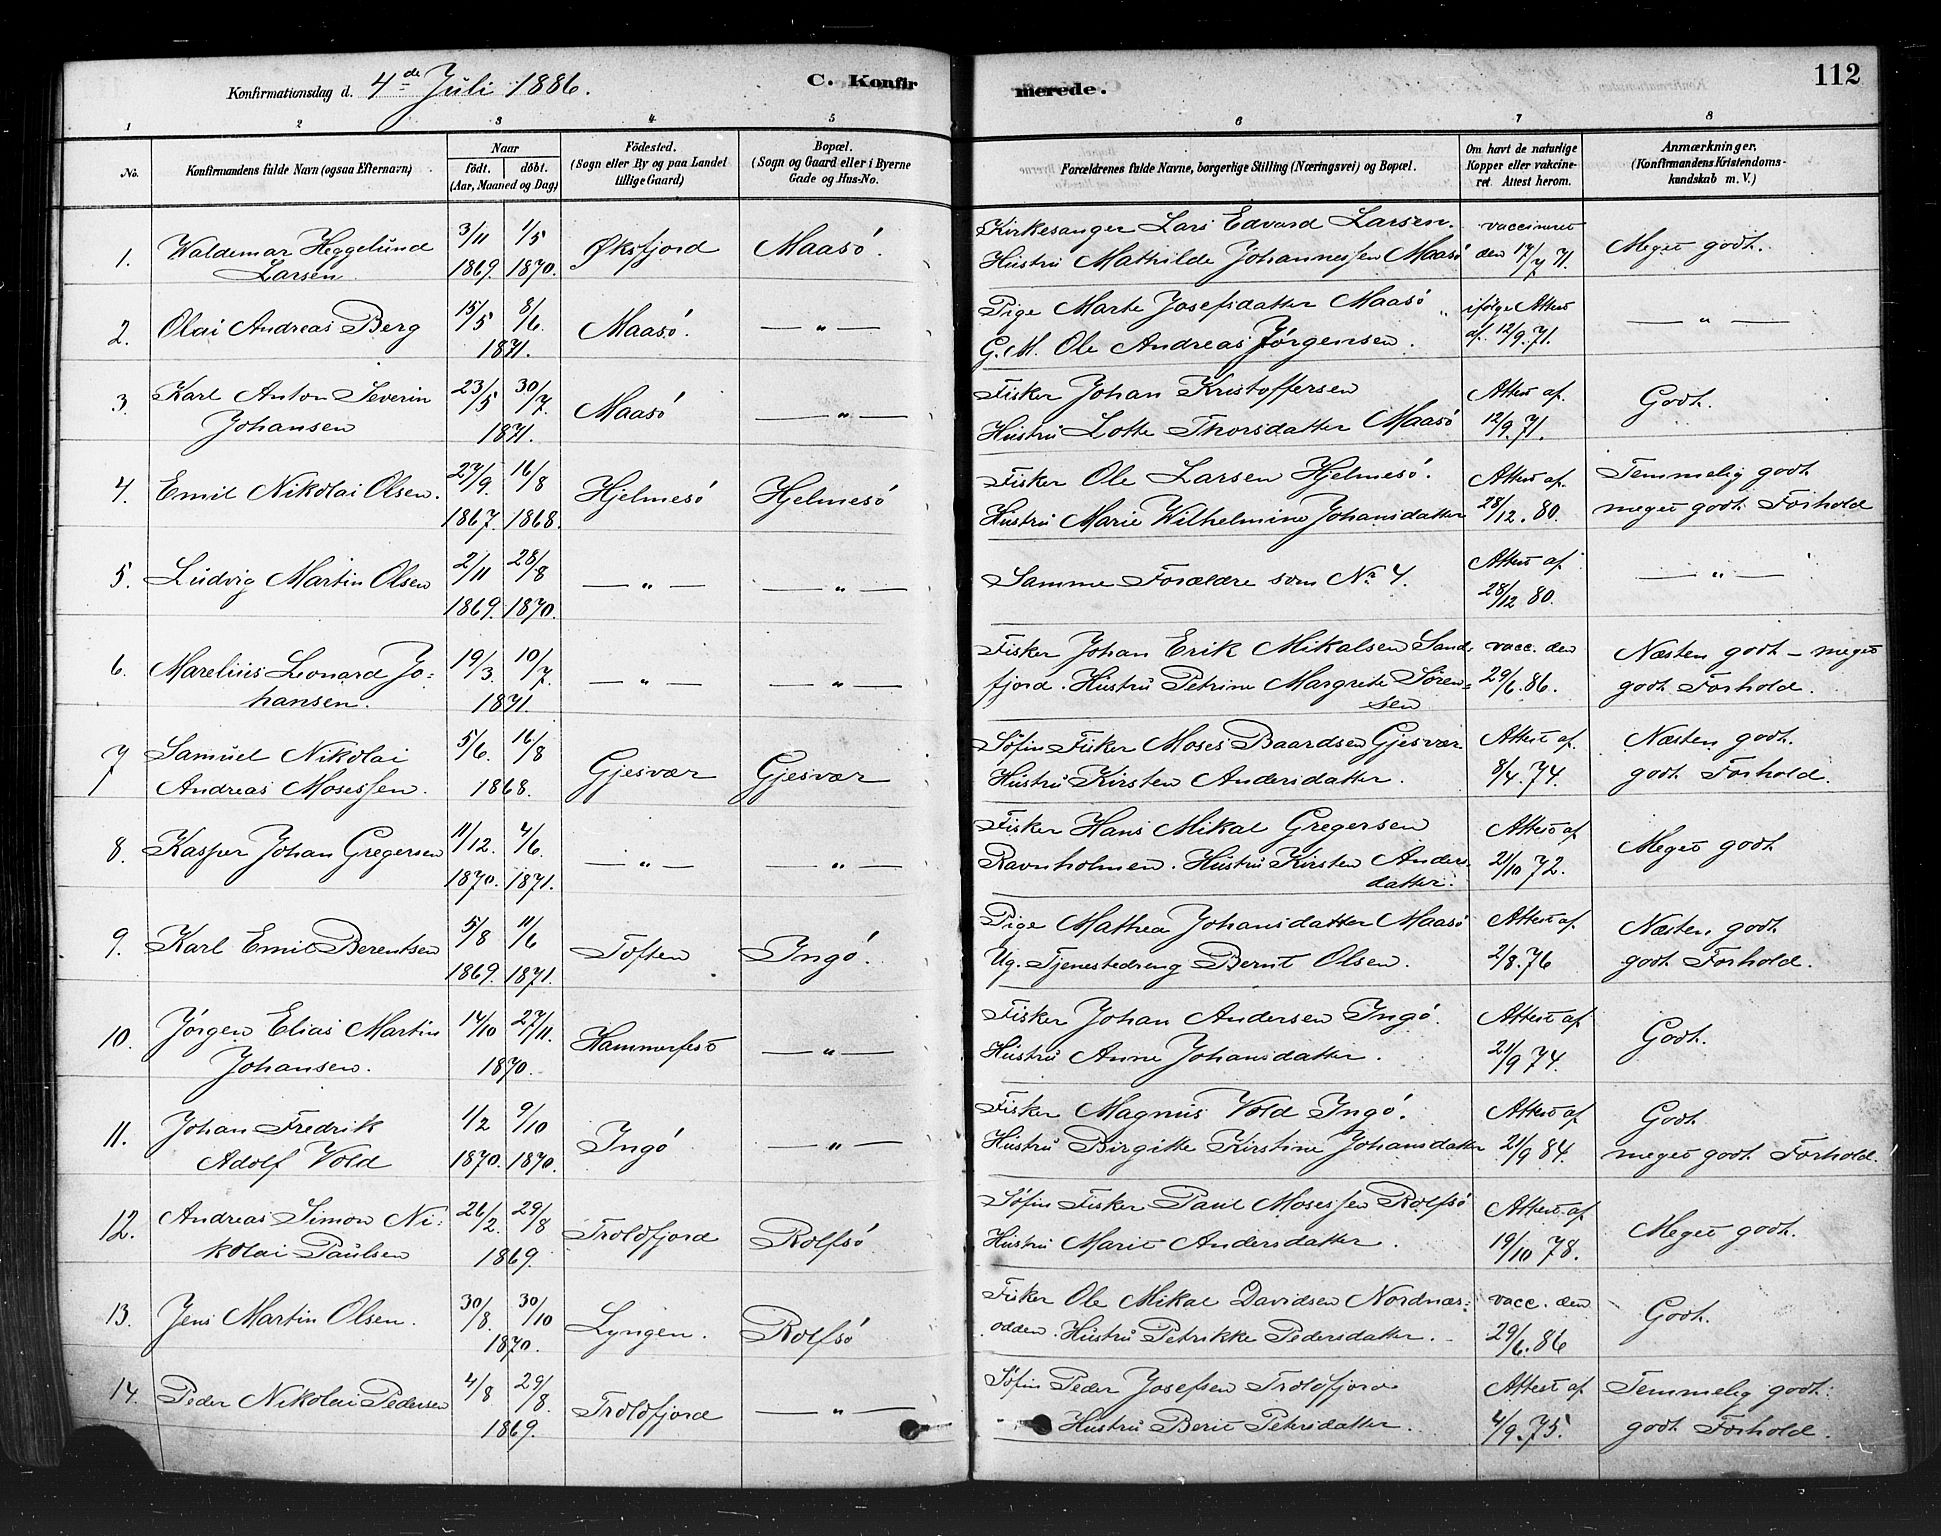 Konfirmationsdag d. 4de Juli 1886.
C. Konfirmerede.
112
1 2 3 4 5 6 7 8
No.
Konfirmandens fulde Navn (ogsaa Efternavn)
Naar
født. døbt.
(Aar, Maaned og Dag)
Fødested.
(Sogn eller By og paa Landet
tillige Gaard)
Bopæl.
(Sogn og Gaard eller i Byerne
Gade og Hus-No.
Forældrenes fulde Navne, borgerlige Stilling (Næringsvei) og Bopæl.
Om havt de naturlige
Kopper eller vakcine-
ret. Attest herom.
Anmærkninger.
(Konfirmandens Kristendoms-
kundskab m. V.)
1. Waldemar Heggelund
Larsen
3/11 1869. 1/5 1870.
Øksfjord
Maasö.
Kirkesanger Lars Edvard Larsen.
Hustru Mathilde Johannessen Maasö
vaccineret
den 17/7 71.
Meget godt.
2. Olai Andreas Berg
15/5 8/6
1871.
Maasö.
— " —
Pige Marte Josefsdatter Maasö
G. M. Ole Andreas Jørgensen.
ifølge Attest
af. 12/9. 71.
— " —
3. Karl Anton Severin
Johansen
23/5 30/7
1871.
Maasö
— " —
Fisker Johan Kristoffersen
Hustru Lotte Thorsdatter Maasö
Attest af.
12/9. 71.
Godt.
4. Emil Nikolai Olsen.
27/9. 16/8
1867. 1868.
Hjelmesö
Hjelmesö
Fisker Ole Larsen Hjelmesö.
Hustru Marie Wilhelmine Johansdatter
Attest af.
28/12. 80.
Temmelig godt
meget godt Forhold
5. Ludvig Martin Olsen
2/11 28/8
1869. 1870.
— " —
— " —
Samme Forældre som No 4.
Attest af
28/12 80.
— " —
6. Marelius Leonard Jo-
hansen.
19/3 10/7.
1871.
— " —
— " —
Fisker Johan Erik Mikalsen Sand-
fjord. Hustru Petrine Margrete Sören-
sen
vacc. den
29/6. 86.
Næsten godt – meget
godt Forhold.
7 Samuel Nikolai
Andreas Mosessen.
5/6. 16/8
1868.
Gjesvær
Gjesvær
Söfin Fisker Moses Baardsen Gjesvær
Hustru Kirsten Andersdatter.
Attest af.
8/4. 74.
Næsten godt.
godt Forhold.
8. Kasper Johan Gregersen
11/12. 4/6.
1870. 1871.
— " —
— " —
Fisker Hans Mikal Gregersen
Ravnholmen. Hustru Kirsten Anders-
datter.
Attest af
21/10 72.
Meget godt
9. Karl Emil Berentsen
5/8 11/6
1869. 1871.
Toften
Ingö.
Pige Mathea Johansdatter Maasö
Ug. Tjenestedreng Bernt Olsen.
Attest af.
2/8. 76
Næsten godt
godt Forhold.
10. Jørgen Elias Martin
Johansen.
14/10 27/11.
1870.
Hammerfest
— " —
Fisker Johan Andersen Ingö.
Hustru Anne Johansdatter.
Attest af
21/9 74.
Godt.
11. Johan Fredrik
Adolf Vold
1/2 9/10
1870. 1870.
Ingö
— " —
Fisker Magnus Vold Ingö.
Hustru Birgitte Kirstine Johansdatter
Attest af
21/9 84.
Godt
meget godt Forhold.
12. Andreas Simon Ni-
kolai Paulsen
26/2. 29/8
1869.
Troldfjord
Rolfsö
Söfin Fisker Paul Mosessen Rolfsö
Hustru Marit Andersdatter.
Attest af
19/10 78.
Meget godt.
13. Jens Martin Olsen.
30/8. 30/10
1870.
Lyngen.
Rolfsö
Fisker Ole Mikal Davidsen Nordnæs-
odden. Hustru Petrikke Pedersdatter.
vacc. den
29/6. 86
Godt.
14. Peder Nikolai Pedersen
4/8 29/8.
1869.
Troldfjord
— " —
Söfin Peder Josefsen Troldfjord
Hustru Berit Petersdatter.
Attest af
4/9. 75.
Temmelig godt.
godt Forhold.